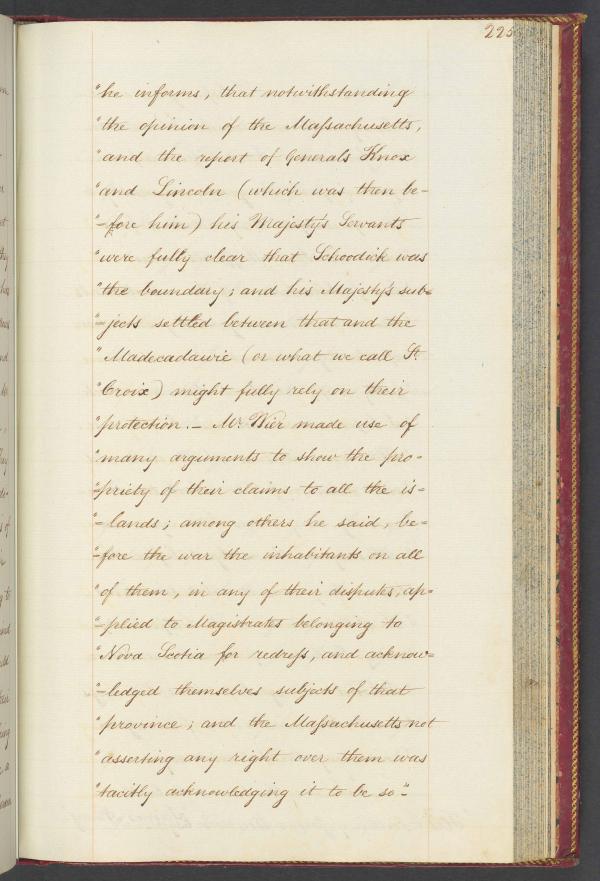 225
"he informs, that notwithstanding
"the opinion of the Massachusetts,
"and the report of Generals Knox
"and Lincoln (which was then be-
"-fore him) his Majesty's Servants
"were fully clear that Schoodick was
"the boundary; and his Majesty's sub=
"=jects settled between that and the
"Madecadawic (or what we call St.
"Croix) might fully rely on their
"protection.— Mr. Wier made use of
"many arguments to show the pro=
"=priety of their claims to all the is=
"=lands; among others he said, be=
"=fore the war the inhabitants on all
"of them, in any of their disputes, ap=
"=plied to Magistrates belonging to
"Nova Scotia for redress, and acknow=
"=ledged themselves subjects of that
"province; and the Massachusetts not
"asserting any right over them was
"tacitly acknowledging it to be so".